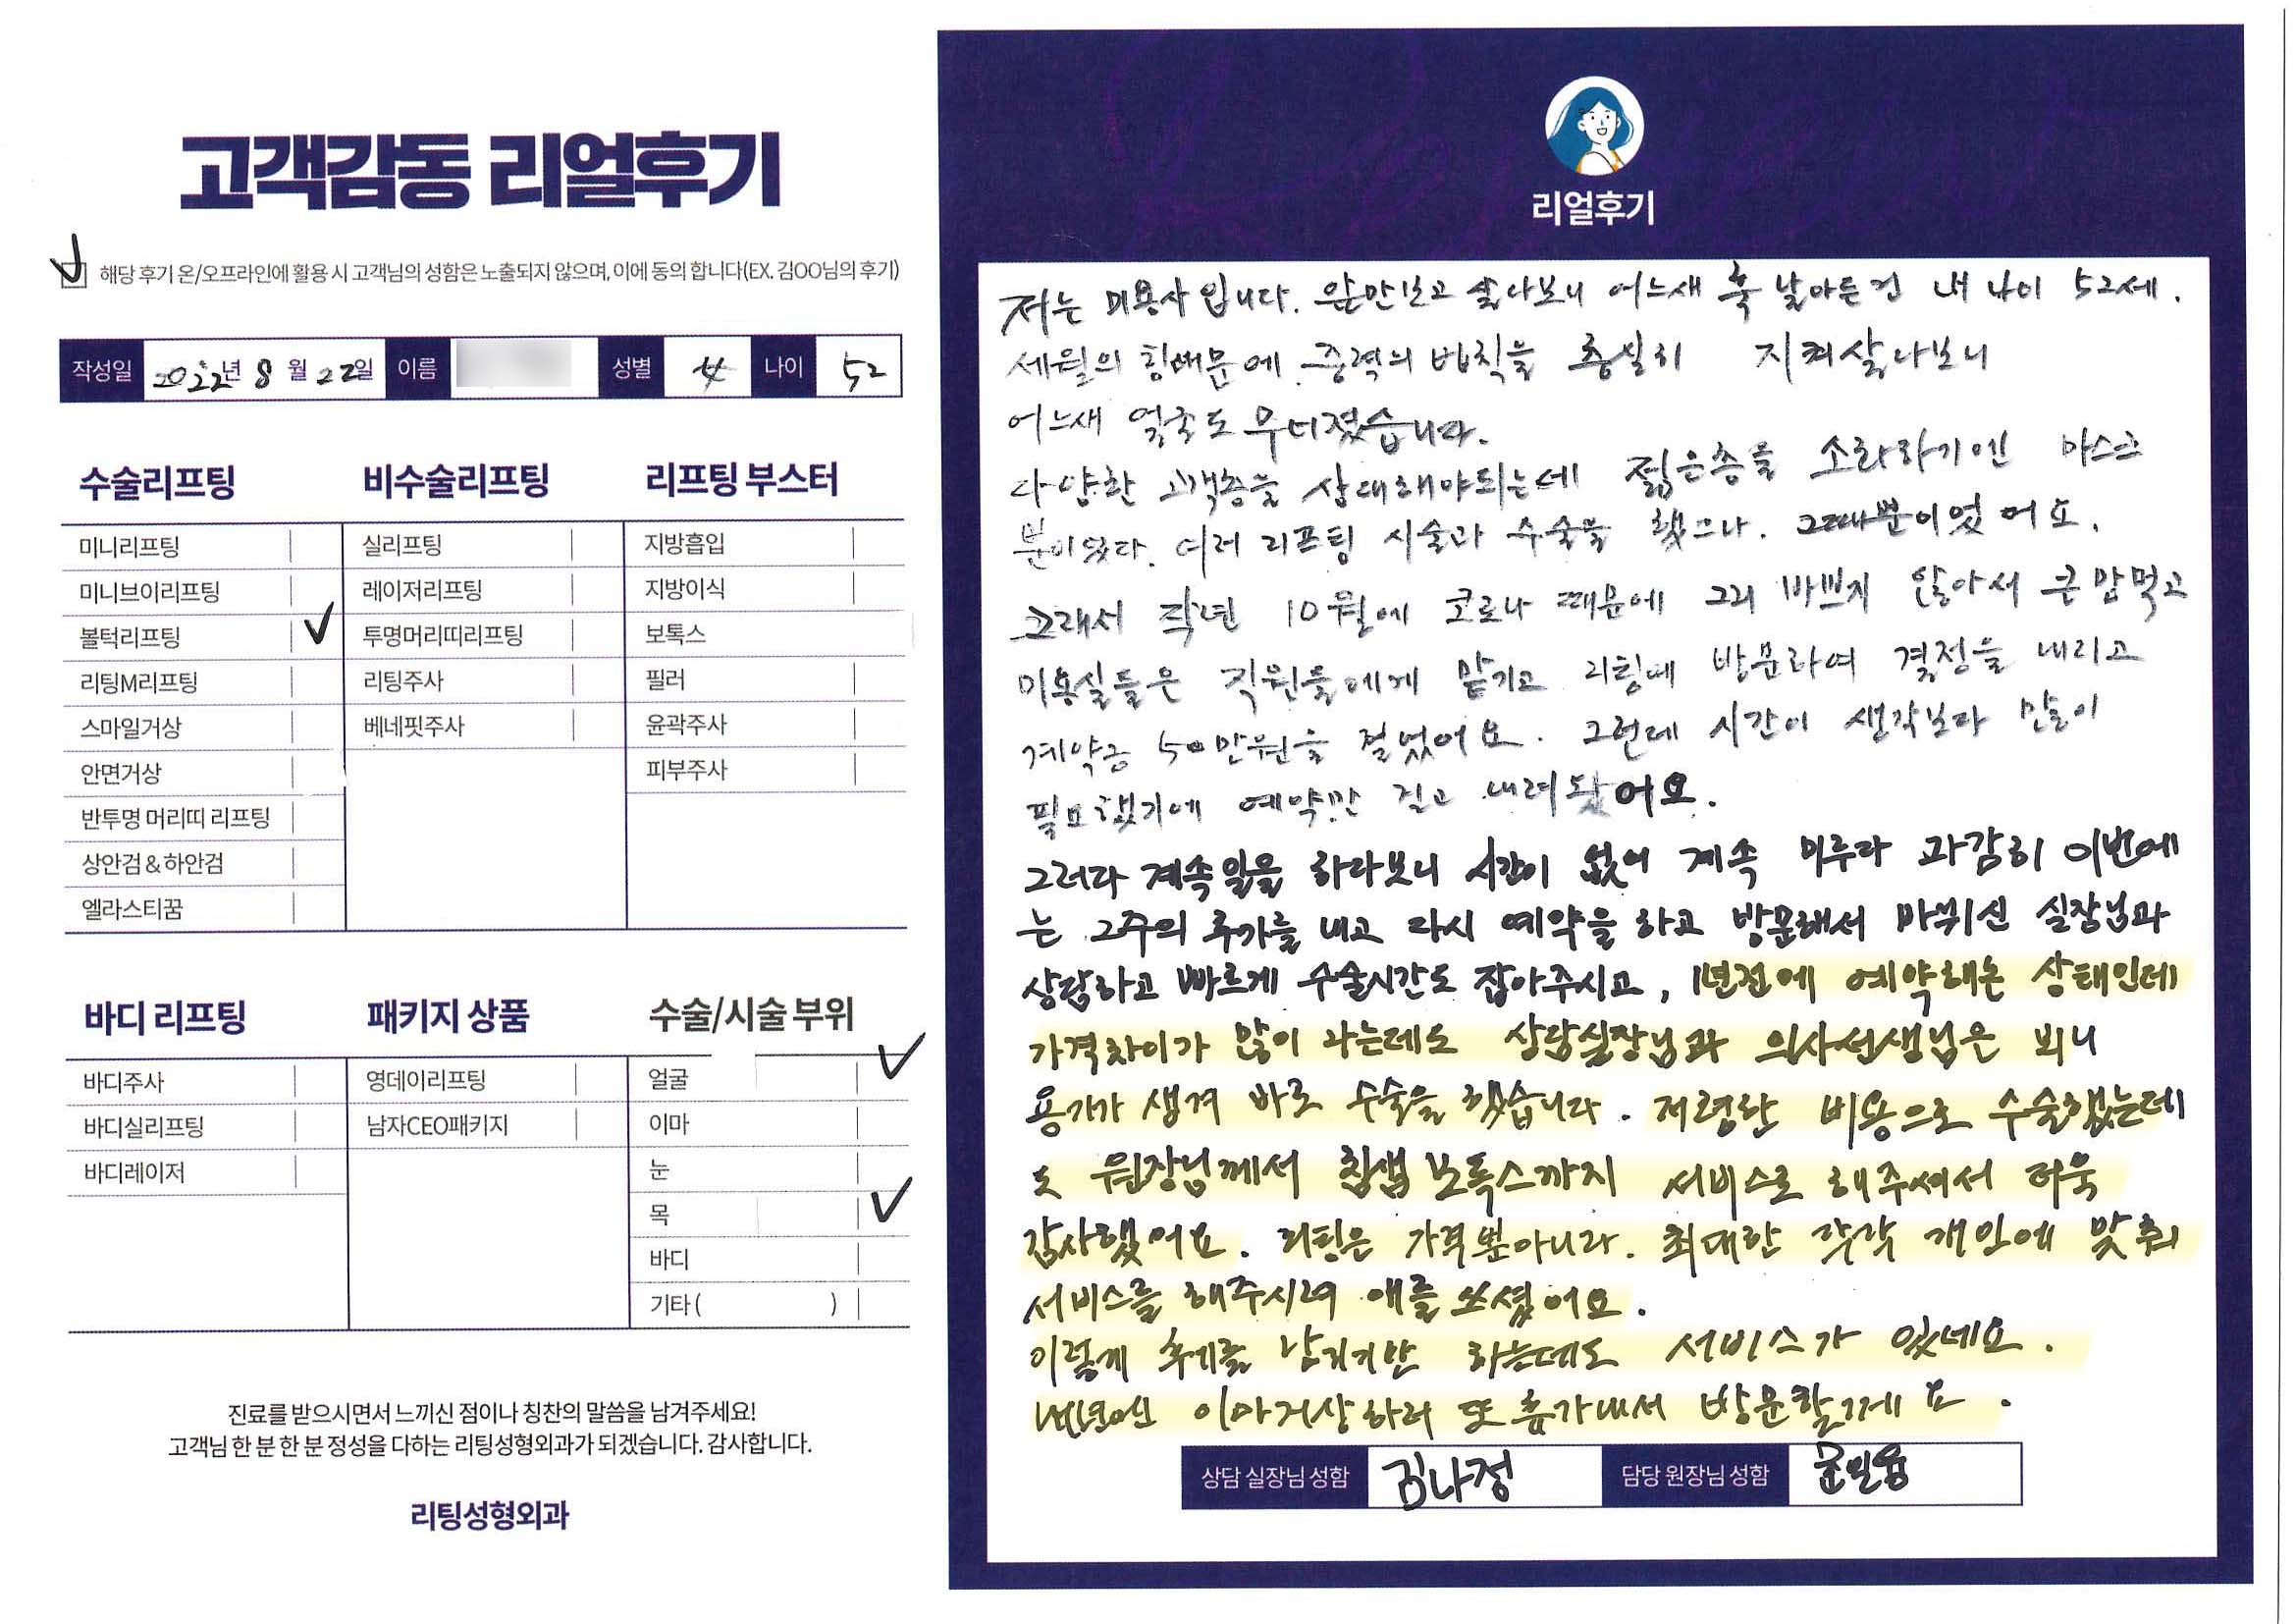 고객감동 리얼후기
해당 후기 온/오프라인에 활용 시 고객님의 성함은 노출되지 않으며, 이에 동의 합니다(EX. 김OO님의 후기)
작성일 2022년 8월 22일 이름 성별 나이 52
수술리프팅
미니리프팅
미니브이리프팅
볼턱리프팅
리팅M리프팅
스마일거상
안면거상
반투명 머리띠 리프팅
상안검 & 하안검
엘라스티꿈
비수술리프팅
실리프팅
레이저리프팅
투명머리띠리프팅
리팅주사
베네핏주사
리프팅 부스터
지방흡입
지방이식
보톡스
필러
윤곽주사
피부주사
바디 리프팅
바디주사
바디실리프팅
바디레이저
패키지 상품
영데이리프팅
남자CEO패키지
수술/시술 부위
얼굴
이마
눈
목
바디
기타 ( )
진료를 받으시면서 느끼신 점이나 칭찬의 말씀을 남겨주세요!
고객님 한 분 한 분 정성을 다하는 리팅성형외과가 되겠습니다. 감사합니다.
리팅성형외과
리얼후기
저는 미용사입니다. 앞만보고 살다보니 어느새 훅 날아든건 내 나이 52세.
세월의 힘때문에 중력의 법칙을 충실히 지켜살다보니
어느새 얼굴도 무너졌습니다.
다양한 고객층을 상대해야되는데 젊은층을 소화하기엔 마스크
분이였다. 여러 리프팅 시술과 수술을 했으나. 그때뿐이었어요.
그래서 작년 10월에 코로나 때문에 그리 바쁘지 않아서 큰맘먹고
미용실들은 직원들에게 맡기고 리팅에 방문하여 결정을 내리고
계약금 50만원을 걸었어요. 그런데 시간이 생각보다 많이
필요했기에 예약만 걸고 내려왔어요.
그러다 계속일을 하다보니 시간이 없어 계속 미루다 과감히 이번에
는 2주의 휴가를 내고 다시 예약을 하고 방문해서 바뀌신 실장님과
상담하고 빠르게 수술시간도 잡아주시고, 1년전에 예약해논 상태인데
가격차이가 많이 나는데도 상담실장님과 의사선생님은 뵈니
용기가 생겨 바로 수술을 했습니다. 저렴한 비용으로 수술했는데
도 원장님께서 침샘 보톡스까지 서비스로 해주셔서 더욱
감사했어요. 리팅은 가격뿐아니라. 최대한 각각 개인에 맞춰
서비스를 해주시려 애를 쓰셨어요.
이렇게 후기를 남기기만 하는데도 서비스가 있네요.
내년엔 이마거상하러 또 휴가내서 방문할게요.
상담 실장님 성함 김나정 담당 원장님 성함